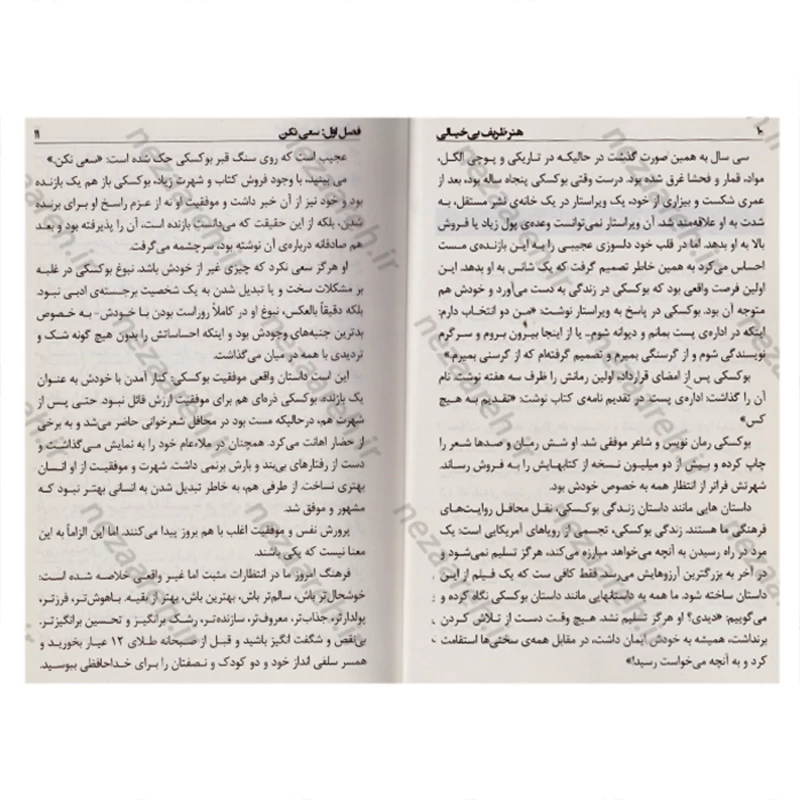 ۱۰ هنر ظریف بی‌خیالی
سی سال به همین صورت گذشت در حالیکه در تاریکی و پوچی الکل،
مواد، قمار و فحشا غرق شده بود. درست وقتی بوکسکی پنجاه ساله بود، بعد از
عمری شکست و بیزاری از خود، یک ویراستار در یک خانه‌ی نشر مستقل، به
شدت به او علاقه‌مند شد. آن ویراستار نمی‌توانست وعده‌ی پول زیاد یا فروش
بالا به او بدهد. اما در قلب خود دلسوزی عجیبی را به این بازنده‌ی مست
احساس می‌کرد به همین خاطر تصمیم گرفت که یک شانس به او بدهد. این
اولین فرصت واقعی بود که بوکسکی در زندگی به دست می‌آورد و خودش هم
متوجه آن بود. بوکسکی در پاسخ به ویراستار نوشت: «من دو انتخاب دارم:
اینکه در اداره‌ی پست بمانم و دیوانه شوم.. یا از اینجا بیرون بروم و سرگرم
نویسندگی شوم و از گرسنگی بمیرم و تصمیم گرفته‌ام که از گرسنگی بمیرم.»
بوکسکی پس از امضای قرارداد، اولین رمانش را ظرف سه هفته نوشت. نام
آن را گذاشت: اداره‌ی پست. در تقدیم نامه‌ی کتاب نوشت: «تقدیم به هیچ
کس»
بوکسکی رمان نویس و شاعر موفقی شد. او شش رمان و صدها شعر را
چاپ کرده و بیش از دو میلیون نسخه از کتابهایش را به فروش رساند.
شهرتش فراتر از انتظار همه به خصوص خودش بود.
داستان هایی مانند داستان زندگی بوکسکی، نقل محافل روایت‌های
فرهنگی ما هستند. زندگی بوکسکی، تجسمی از رویاهای آمریکایی است: یک
مرد در راه رسیدن به آنچه می‌خواهد مبارزه می‌کند، هرگز تسلیم نمی‌شود و
در آخر به بزرگترین آرزوهایش می‌رسد. فقط کافی ست که یک فیلم از این
داستان ساخته شود. ما همه به داستانهایی مانند داستان بوکسکی نگاه کرده و
می‌گوییم: «دیدی؟ او هرگز تسلیم نشد. هیچ وقت دست از تلاش کردن
برنداشت، همیشه به خودش ایمان داشت، در مقابل همه‌ی سختی‌ها استقامت
کرد و به آنچه می‌خواست رسید!»
فصل اول: سعی نکن ۱۱
عجیب است که روی سنگ قبر بوکسکی حک شده است: «سعی نکن.»
می بینید، با وجود فروش کتاب و شهرت زیاد، بوکسکی باز هم یک بازنده
بود و خود نیز از آن خبر داشت و موفقیت او نه از عزم راسخ او برای برنده
شدن، بلکه از این حقیقت که می‌دانست بازنده است، آن را پذیرفته بود و بعد
هم صادقانه درباره‌ی آن نوشته بود، سرچشمه می‌گرفت.
او هرگز سعی نکرد که چیزی غیر از خودش باشد. نبوغ بوکسکی در غلبه
بر مشکلات سخت و یا تبدیل شدن به یک شخصیت برجسته‌ی ادبی نبود.
بلکه دقیقاً بالعکس، نبوغ او در کاملاً روراست بودن با خودش- به خصوص
بدترین جنبه‌های وجودش بود و اینکه احساساتش را بدون هیچ گونه شک و
تردیدی با همه در میان می‌گذاشت.
این است داستان واقعی موفقیت بوکسکی: کنار آمدن با خودش به عنوان
یک بازنده. بوکسکی ذره‌ای هم برای موفقیت ارزش قائل نبود. حتی پس از
شهرت هم، درحالیکه مست بود در محافل شعرخوانی حاضر می‌شد و به برخی
از حضار اهانت می‌کرد. همچنان در ملاءعام خود را به نمایش می‌گذاشت و
دست از رفتارهای بی‌بند و بارش برنمی داشت. شهرت و موفقیت از او انسان
بهتری نساخت. از طرفی هم، به خاطر تبدیل شدن به انسانی بهتر نبود که
مشهور و موفق شد.
پرورش نفس و موفقیت اغلب با هم بروز پیدا می‌کنند. اما این الزاماً به این
معنا نیست که یکی باشند.
فرهنگ امروز ما در انتظارات مثبت اما غیر واقعی خلاصه شده است:
خوشحال‌تر باش، سالم‌تر باش، بهترین باش، بهتر از بقیه. باهوش‌تر، فرزتر،
پولدارتر، جذاب‌تر، معروف‌تر، سازنده‌تر، رشک برانگیز و تحسین برانگیزتر.
بی‌نقص و شگفت انگیز باشید و قبل از صبحانه طلای ۱۲ عیار بخورید و
همسر سلفی انداز خود و دو کودک و نصفتان را برای خداحافظی ببوسید.
nezaareh.ir